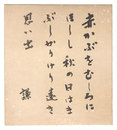 赤かぶをむしろに
ほしし秋の日はさ
びしかりけり遠き
思ひ出